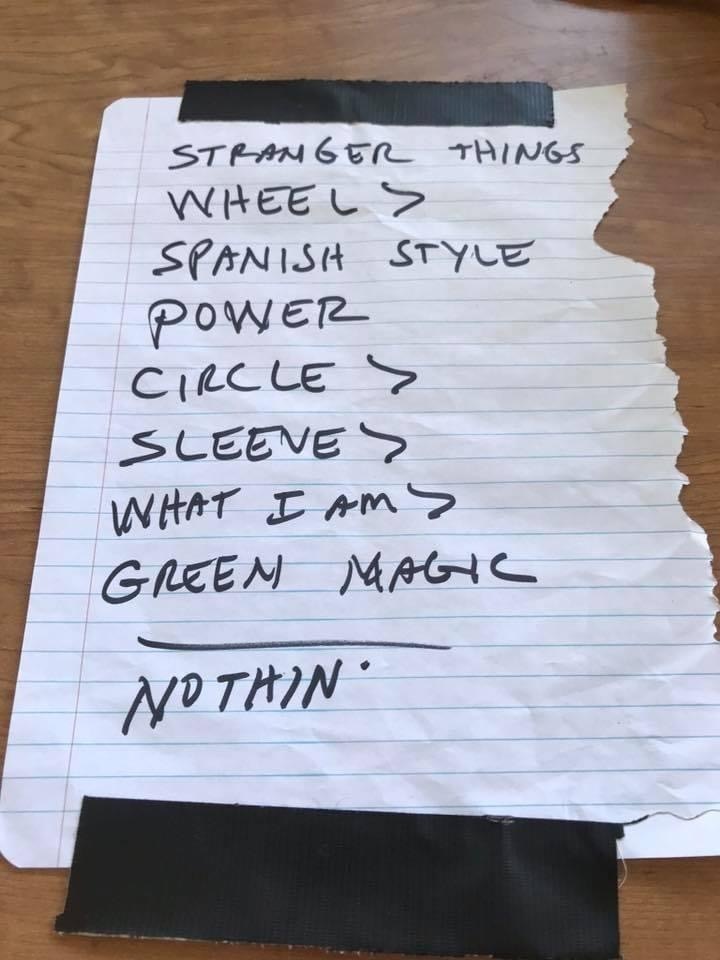 STRANGER THINGS
WHEEL >
SPANISH STYLE
POWER
CIRCLE >
SLEEVE >
WHAT I AM >
GREEN MAGIC
NOTHIN'